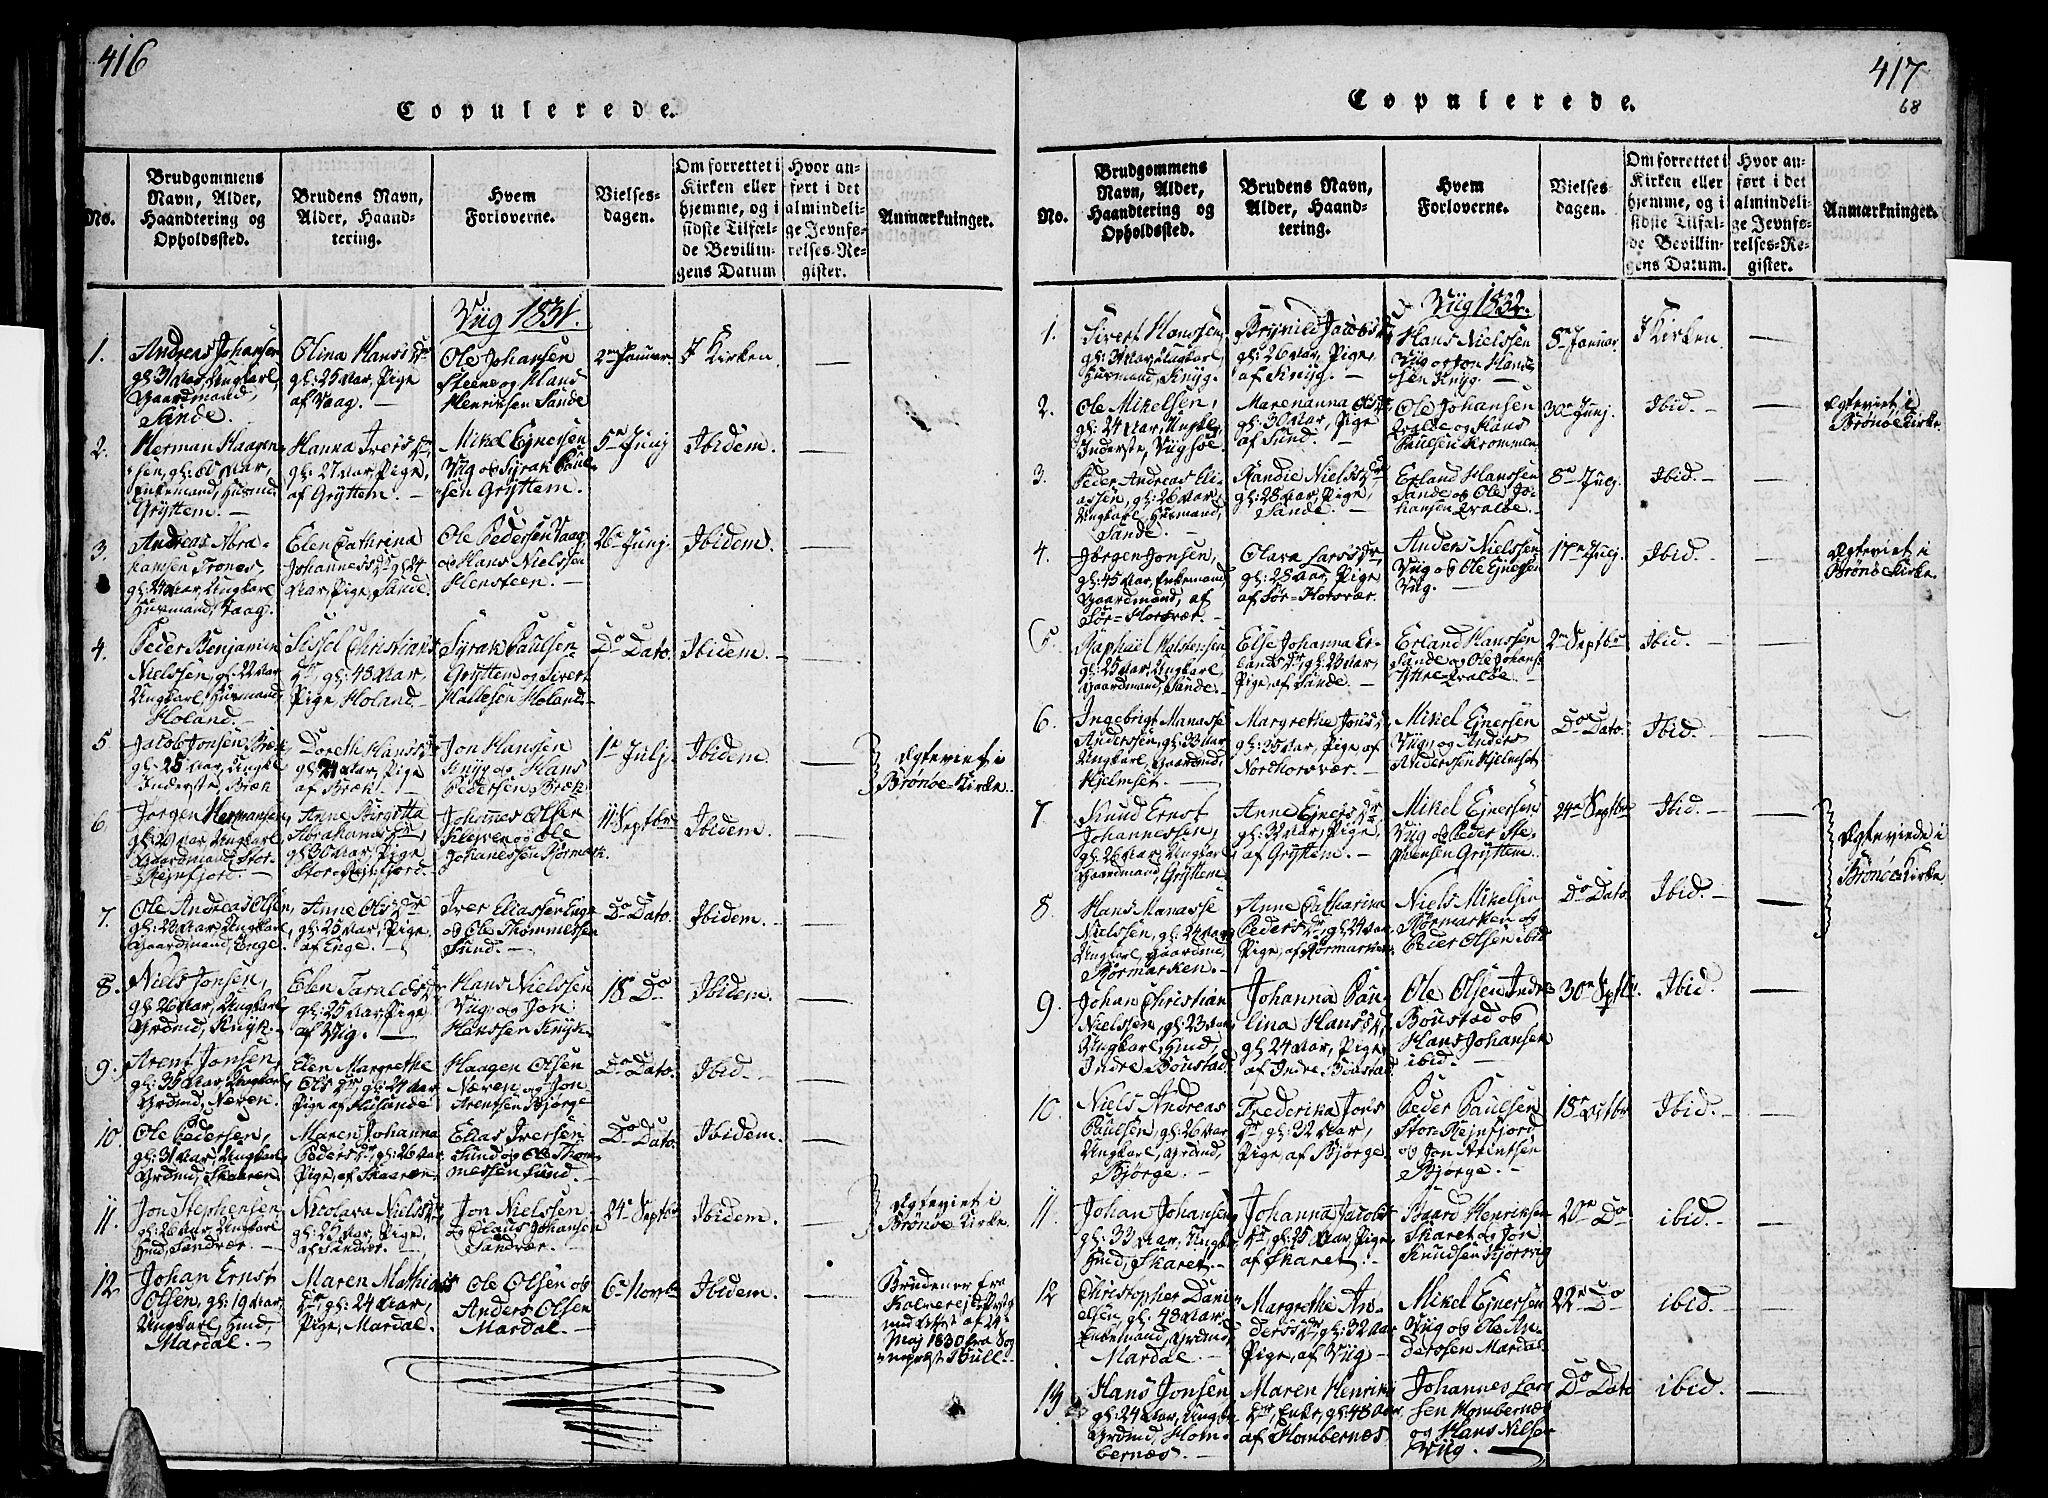 416
Copulerede.
No.
Brudgommens
Navn, Alder,
Haandtering og
Opholdssted.
Brudens Navn,
Alder, Haand-
tering.
Hvem
Forloverne.
Vielses-
dagen.
Om forrettet i
Kirken eller
hjemme, og i
sidste Tilfæl-
de Bevillin-
gens Datum
Hvor an-
ført i det
almindeli-
ge Jevnfø-
relses-Re-
gister.
Anmærkninger.
Viig 1831.
1.
Andreas Johansen
gl: 31 Aar, Ungkarl,
Gaardmand,
Sande.
Olina Hans Dr
gl: 25 Aar, Pige
af Vaag. —
Ole Johansen
Steene og Hans
Henriksen Sande
2en Januar.
I Kirken
2.
Herman Haagen-
sen, gl: 60 Aar,
Enkemand, Husmd
Gryttem. —
Hanna Ivers Dr,
gl: 27 Aar, Pige,
af Gryttem. —
Mikel Ejnersen
Viig og Syrak Paul-
sen Gryttem.
5e Junj
Ibidem.
3.
Andreas Abra-
hamsen Trones
gl: 24 Aar, Ungkarl
Husmand, Vaag.
Elen Cathrina
Johannes Dr gl 24
Aar, Pige, Sande.
Ole Pedersen Vaag
og Hans Nielssen
Hensteen. —
26e Junj.
Ibidem.
4.
Peder Benjamin
Nielssen, gl: 22 Aar
Ungkarl, Husmand
Holand. —
Sissel Christians
Dr, gl: 48 Aar,
Pige, Holand. —
Syrak Paulsen
Gryttem og Sivert
Hallesen Holand.
Do Dato.
Ibidem. —
5
Jacob Jonsen Bræk
gl: 25 Aar, Ungkl
Inderste, Bræk
Doreth Hans Dr
gl: 24 Aar, Pige
af Bræk.
Jon Hanssen
Knyg og Hans
Pedersen Bræk
1e Julj.
Ibidem.
Egteviet i
Brønøe Kirke.
6
Jørgen Hermansen
gl: 20 Aar, Ungkarl
Gaardmand, Stor-
Rejnfjord. —
Anne Birgitta
Abrahams Dr
gl: 30 Aar, Pige
Stor-Rejnfjord.
Johannes Olsen
Kleiven og Ole
Johanessen Rørmark.
11 Septbr
Ibidem.
7.
Ole Andreas Olsen,
gl: 23 Aar, Ungkarl
Gaardmand, Enge.
Anne Ols Dr
gl: 25 Aar, Pige.
af Enge. —
Iver Eliassen Enge
og Ole Thommessen
Sund. —
Do Dato.
Ibidem. —
8.
Niels Jonsen,
gl: 26 Aar, Ungkarl
Grdmd, Knyk. —
Elen Taralds Dr
gl: 25 Aar, Pige,
af Viig. —
Hans Nielssen
Viig, og Jon
Hanssen Knyk.
18 Do
Ibidem.
9.
Arent Jonsen,
gl: 35 Aar, Ungkarl,
Grdmd, Næven.
Elen Margrethe
Ols Dr, gl: 24 Aar
Pige af Hulande
Haagen Olsen
Næven og Jon
Arentsen Bjørge
Do Dato.
Ibid. —
10.
Ole Pedersen,
gl: 31 Aar, Ungkarl
Grdmd, Skaaren
Maren Johanna
Peders Dr, gl: 26 Aar
Pige, af Skaaren.
Elias Iversen
Sund og Ole Thom-
messen Sund. —
Do Dato
Ibidem.
11.
Jon Stephensen
gl: 26 Aar, Ungkarl
Hmd, Sandvær. —
Nicolava Niels Dr
gl: 25 Aar, Pige,
af Sandvær. —
Jon Nielssen
og Claus Johansen
Sandvær. —
Septbr
Ibidem.
Egteviet i
Brønøe Kirke.
12
Johan Ernst
Olsen, gl: 19 Aar,
Ungkarl, Hmd,
Mardal. —
Maren Mathias
Dr, gl: 24 Aar,
Pige, Mardal.
Ole Olsen og
Anders Olsen
Mardal. —
6e Novbr
Ibidem.
Brudener fra
Maj 1830 fra Sog-
nepræst Bull. —
417
68
Copulerede.
No.
Brudgommens
Navn, Alder,
Haandtering og
Opholdssted.
Brudens Navn,
Alder, Haand-
tering.
Hvem
Forloverne.
Vielses-
dagen.
Om forrettet i
Kirken eller
hjemme, og i
sidste Tilfæl-
de Bevillin-
gens Datum.
Hvor an-
ført i det
almindeli-
ge Jevnfø-
relses-Re-
gister.
Anmærkninger.
Viig 1832.
1.
Sivert Hanssen,
gl: 31 Aar, Ungkarl,
Husmand, Knyg.
Brynild Jacobs Dr
gl: 26 Aar, Pige,
af Knyg. —
Hans Nielssen
Viig og Jon Hans-
sen Knyg. —
8e Januar.
I Kirken.
2.
Ole Mikelsen,
gl: 24 Aar, Ungkl
Inderste, Viigsøe.
Marenanna Ols Dr
gl: 30 Aar, Pige
af Sund. —
Ole Johansen
Qvaløe og Hans
Paulsen Krommen
30e Junj.
Ibid. —
Egteviet i
Brønøe Kirke.
3.
Peder Andreas Eli-
assen, gl: 26 Aar,
Ungkarl, Husmand,
Sande. —
Randie Niels Dr
gl: 28 Aar, Pige,
Sande. —
Erland Hanssen
Sande og Ole Jo-
hansen Qvaløe.
8e Julj.
Ibid. —
4.
Jørgen Jonsen,
gl: 45 Aar, Enkemand
Gaardmand, af
Sør-Horsvær. —
Olava Lars Dr,
gl: 28 Aar, Pige
af Sør-Horsvær.
Anders Nielssen
Viig og Ole Ejnersen
Viig. —
17e Julj.
Ibid. —
Egteviet i
Brønøe Kirke.
5.
Raphael Halstensen
gl: 25 Aar, Ungkarl
Gaardmand, Sande.
Else Johanna Er-
lands Dr, gl: 23 Aar,
Pige, af Sande.
Erland Hanssen
Sande og Ole Johans
Ytre-Qvaløe.
2en Septbr
Ibid. —
6.
Ingebrigt Manasse
Anderssen, gl: 33 Aar
Ungkarl, Gaardmand,
Hjelmset. —
Margrethe Jons Dr
gl: 35 Aar, Pige af
Nordhorsvær. —
Mikel Ejnersen
Viig, og Anders
Anderssen Hjelmset
Do Dato.
Ibid. —
7
Knud Ernst
Johannessen,
gl: 26 Aar, Ungkarl
Gaardmand, Gryttem
Anne Ejners Dr
gl: 32 Aar, Pige,
af Gryttem. —
Mikel Ejnersen
Viig og Peder Ste-
phensen Gryttem.
24e Septbr
Ibid. —
Egteviede i
Brønøe Kirke.
8.
Hans Manasse
Nielssen, gl: 24 Aar,
Ungkarl, Gaardmd,
Rørmarken. —
Anne Catharina
Peders Dr, gl: 24 Aar
Pige, af Rørmarken.
Niels Mikelsen
Rørmarken og
Peder Olsen ibid
Do Dato.
Ibid. —
9.
Johan Christian
Nielssen, gl: 23 Aar
Ungkarl, Hmd,
Indre Boustad
Johanna Pau-
lina Hans Dr,
gl: 24 Aar, Pige
af Indre Boustad
Ole Olsen Indre
Boustad og
Hans Johansen
ibid. —
30e Septbr.
Ibid.
10.
Niels Andreas
Paulsen, gl: 26 Aar
Ungkarl, Grdmd,
Bjørge. —
Frederika Jons
Dr, gl: 32 Aar,
Pige, af Bjørge
Peder Paulsen
Stor-Rejnfjord
og Jon Arentsen
Bjørge. —
18e Octbr
Ibid. —
11.
Johan Johansen
gl: 33 Aar, Ungkarl
Hmd, Skaret. —
Johanna Jacobs
Dr gl: 25 Aar, Pige,
af Skaret. —
Baard Henriksen
Skaret og Jon
Knudsen
20e Do
ibid. —
12
Christopher Dani-
elsen, gl: 48 Aar,
Enkemand, Grdmd,
Mardal. —
Margrethe An-
ders Dr, gl: 32 Aar
Pige, af Viig —
Mikel Ejnersen
Viig og Ole An-
derssen Mardal
22e Do
ibid. —
13.
Hans Jonsen
gl: 24 Aar, Ungkarl
Grdmd, Hom-
bernæs. —
Maren Henriks
Dr, Enke, gl: 48 Aar
af Hombernæs
Johannes Lars-
sen Hombernæs
og Hans Nilsen
Viig. —
Do Dato
ibid.